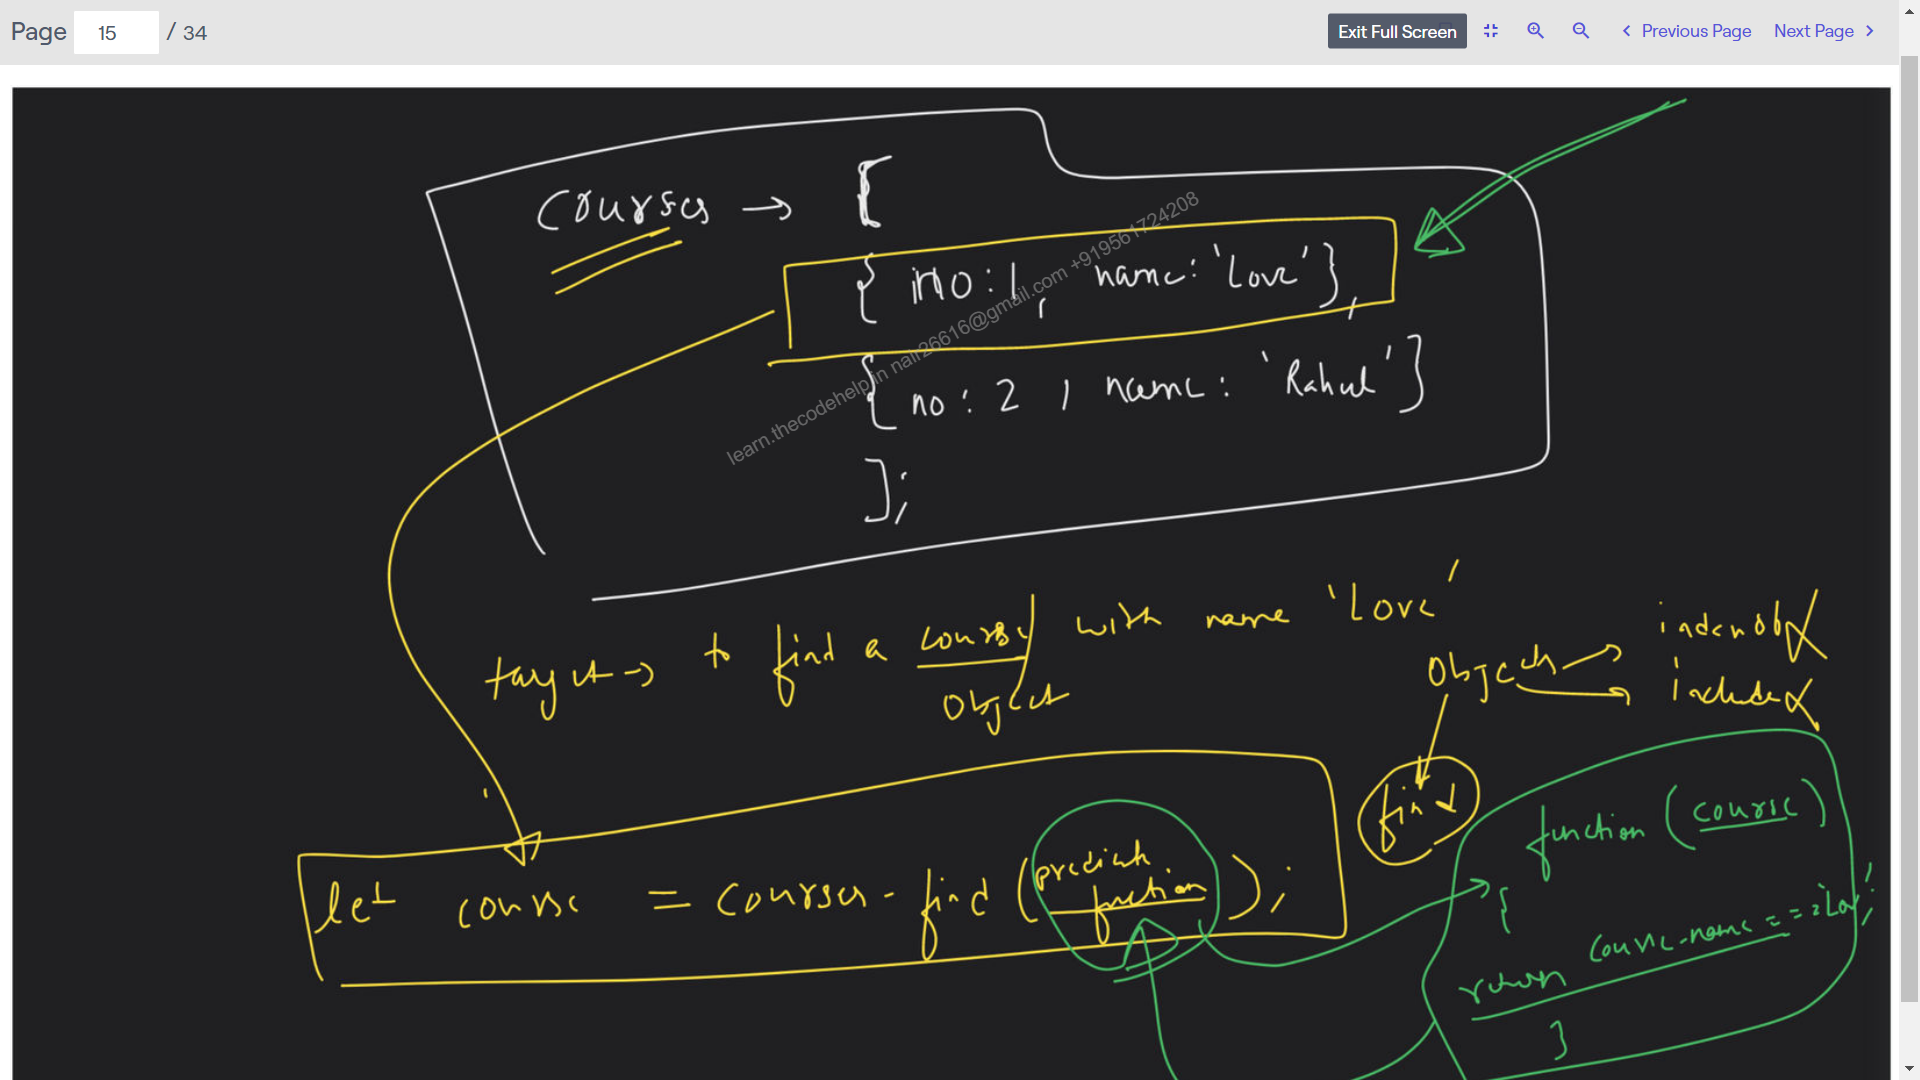 Page 15 / 34 Exit Full Screen Previous Page Next Page
Courses → [
{ no : 1 , name : 'Love' },
{ no : 2 , name : 'Rahul' }
];
learn.thecodehelp.in nair26616@gmail.com +919561724208
target → to find a course / object with name 'Love'
Objects → indexOf
→ includes
find
let course = courses.find ( predicate function );
function ( course )
{
return course.name === 'Love';
}